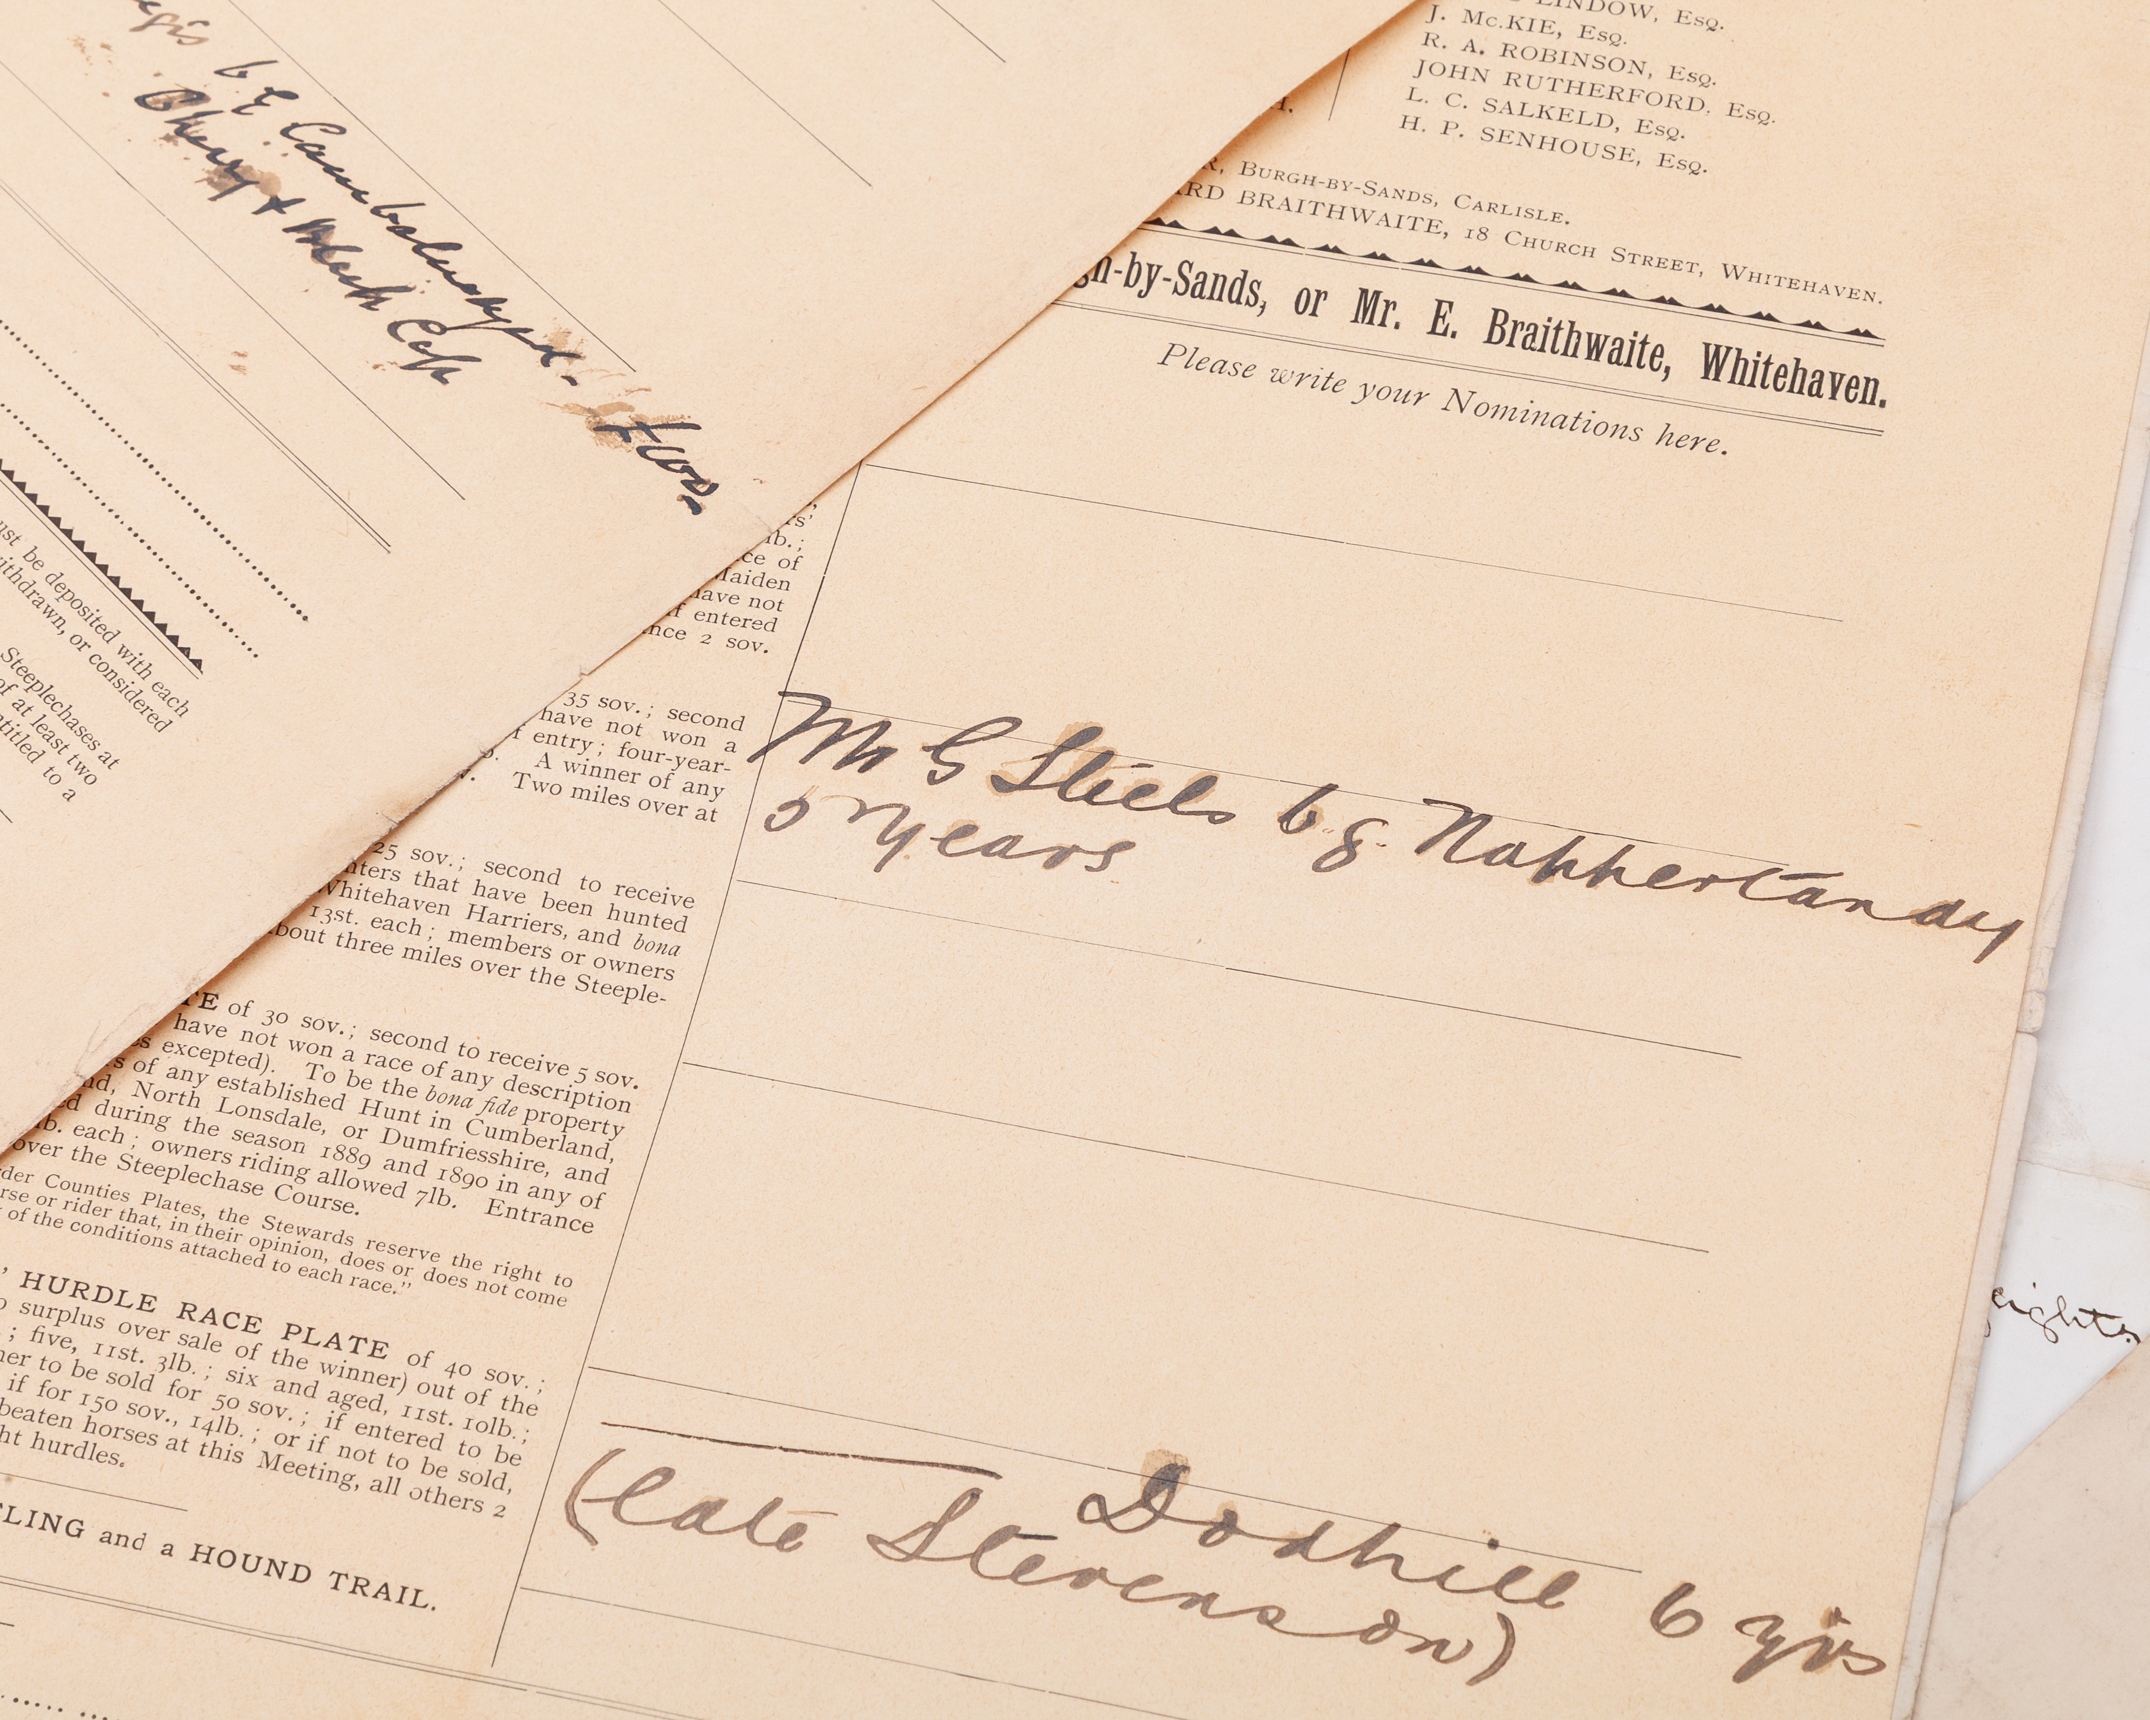 b g Cambalusnag
Cherry & Black Cap
ust be deposited with each
ithdrawn, or considered
Steeplechases at
of at least two
ntitled to a
LINDOW, Esq.
J. Mc.KIE, Esq.
R. A. ROBINSON, Esq.
JOHN RUTHERFORD, Esq.
L. C. SALKELD, Esq.
H. P. SENHOUSE, Esq.
H.
R, BURGH-BY-SANDS, CARLISLE.
ARD BRAITHWAITE, 18 CHURCH STREET, WHITEHAVEN.
gh-by-Sands, or Mr. E. Braithwaite, Whitehaven.
Please write your Nominations here.
rs'
lb.;
ce of
Maiden
have not
if entered
nce 2 sov.
35 sov.; second
have not won a
f entry; four-year-
A winner of any
Two miles over at
Mr G Steels b g. Nappertandy
5 years
25 sov.; second to receive
nters that have been hunted
Whitehaven Harriers, and bona
13st. each; members or owners
bout three miles over the Steeple-
TE of 30 sov.; second to receive 5 sov.
have not won a race of any description
es excepted). To be the bona fide property
s of any established Hunt in Cumberland,
nd, North Lonsdale, or Dumfriesshire, and
ed during the season 1889 and 1890 in any of
lb. each; owners riding allowed 7lb. Entrance
over the Steeplechase Course.
der Counties Plates, the Stewards reserve the right to
rse or rider that, in their opinion, does or does not come
of the conditions attached to each race."
' HURDLE RACE PLATE of 40 sov.;
o surplus over sale of the winner) out of the
; five, 11st. 3lb.; six and aged, 11st. 10lb.;
ner to be sold for 50 sov.; if entered to be
if for 150 sov., 14lb.; or if not to be sold,
beaten horses at this Meeting, all others 2
ht hurdles.
TLING and a HOUND TRAIL.
Dodhill 6 yrs
(late Stevenson)
eights